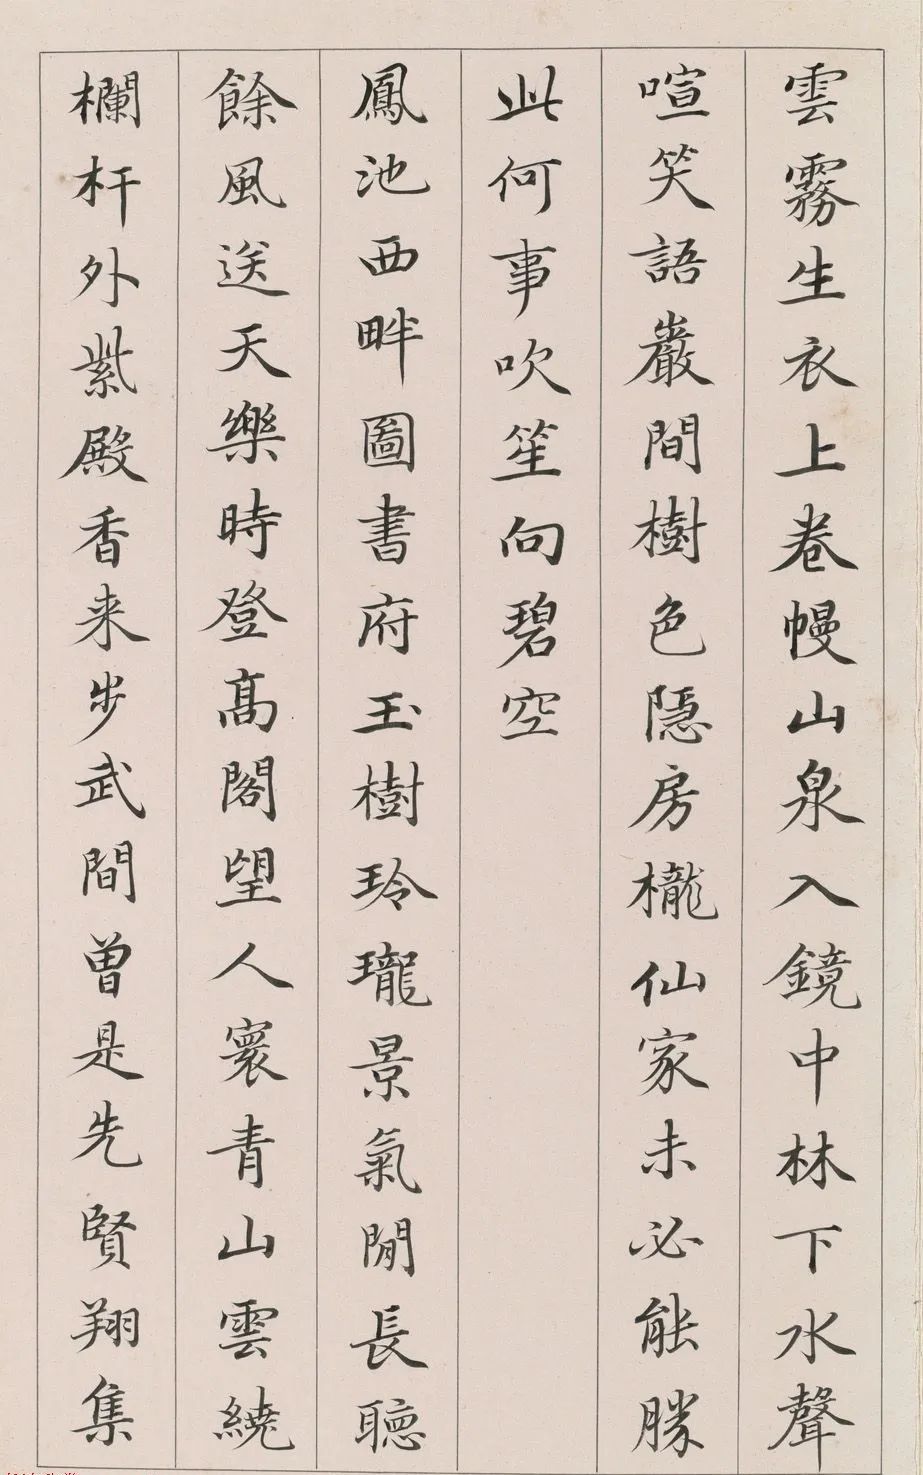 雲霧生衣上卷幔山泉入鏡中林下水聲
喧笑語巖間樹色隱房櫳仙家未必能勝
此何事吹笙向碧空
鳳池西畔圖書府玉樹玲瓏景氣閒長聽
餘風送天樂時登髙閣望人寰青山雲繞
欄杆外紫殿香来步武間曾是先賢翔集